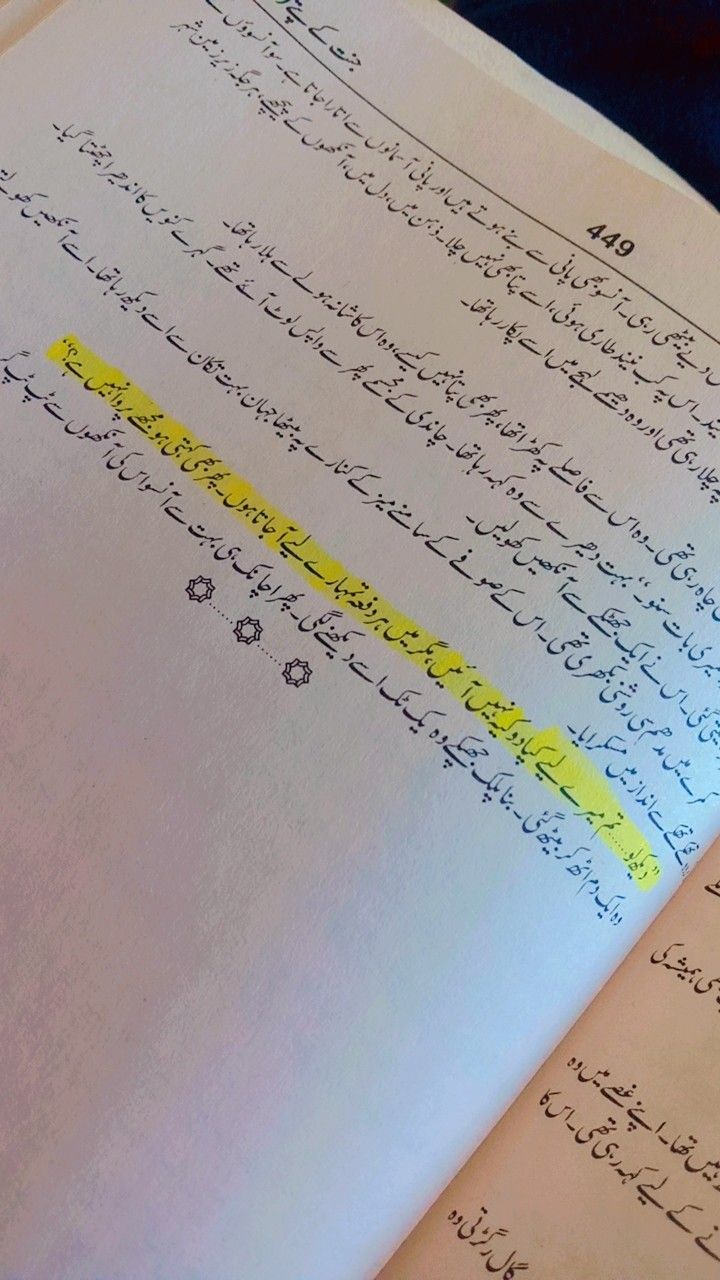 جنت کے پتے
449
دیے بیٹھی رہی۔ آنسو بھی پانی سے بنے ہوتے ہیں اور پانی آسمانوں سے اتارا جاتا ہے۔ سو آنسوؤں
اس پہ کب نیند طاری ہوئی، اسے پتا بھی نہیں چلا۔ ذہن میں، دل میں، آنکھوں کے پیچھے، ہر جگہ زیر زمین شہر
چلا رہی تھی اور وہ دھیمے لہجے میں اسے پکار رہا تھا۔
چاہ رہی تھی۔ وہ اس سے فاصلے پہ کھڑا تھا، پھر بھی پتا نہیں کیسے، وہ اس کا شانہ ہولے سے ہلا رہا تھا۔
میری بات سنو۔“ بہت دھیرے سے وہ کہہ رہا تھا۔ چاندی کے مجسمے پھر سے واپس لوٹ آئے تھے۔ گہرے کنویں کا اندھیرا چھٹتا گیا۔
گئی۔ اس نے ایک جھٹکے سے آنکھیں کھولیں۔
کمرے میں مدھم سی روشنی بکھری تھی۔ اس کے صوفے کے سامنے میز کے کنارے پہ بیٹھا جہان، بہت تکان سے اسے دیکھ رہا تھا۔ اسے آنکھیں کھولتے
تھکے تھکے سے انداز میں مسکرایا۔
”دیکھ لو...... تم میرے لیے کپادوکیہ نہیں آئیں، مگر میں ہر دفعہ تمہارے لیے آ جاتا ہوں۔ پھر بھی کہتی ہو مجھے پروا نہیں ہے؟“
وہ ایک دم اٹھ کر بیٹھ گئی۔ بنا پلک جھپکے وہ یک ٹک اسے دیکھنے لگی۔ پھر اچانک ہی بہت سے آنسو اس کی آنکھوں سے ٹپ ٹپ
ہمیشہ کی
نہیں تھا۔ اپنے غصے میں وہ
نے کے لیے کہہ رہی تھی۔ اس کا
گال رگڑتی وہ